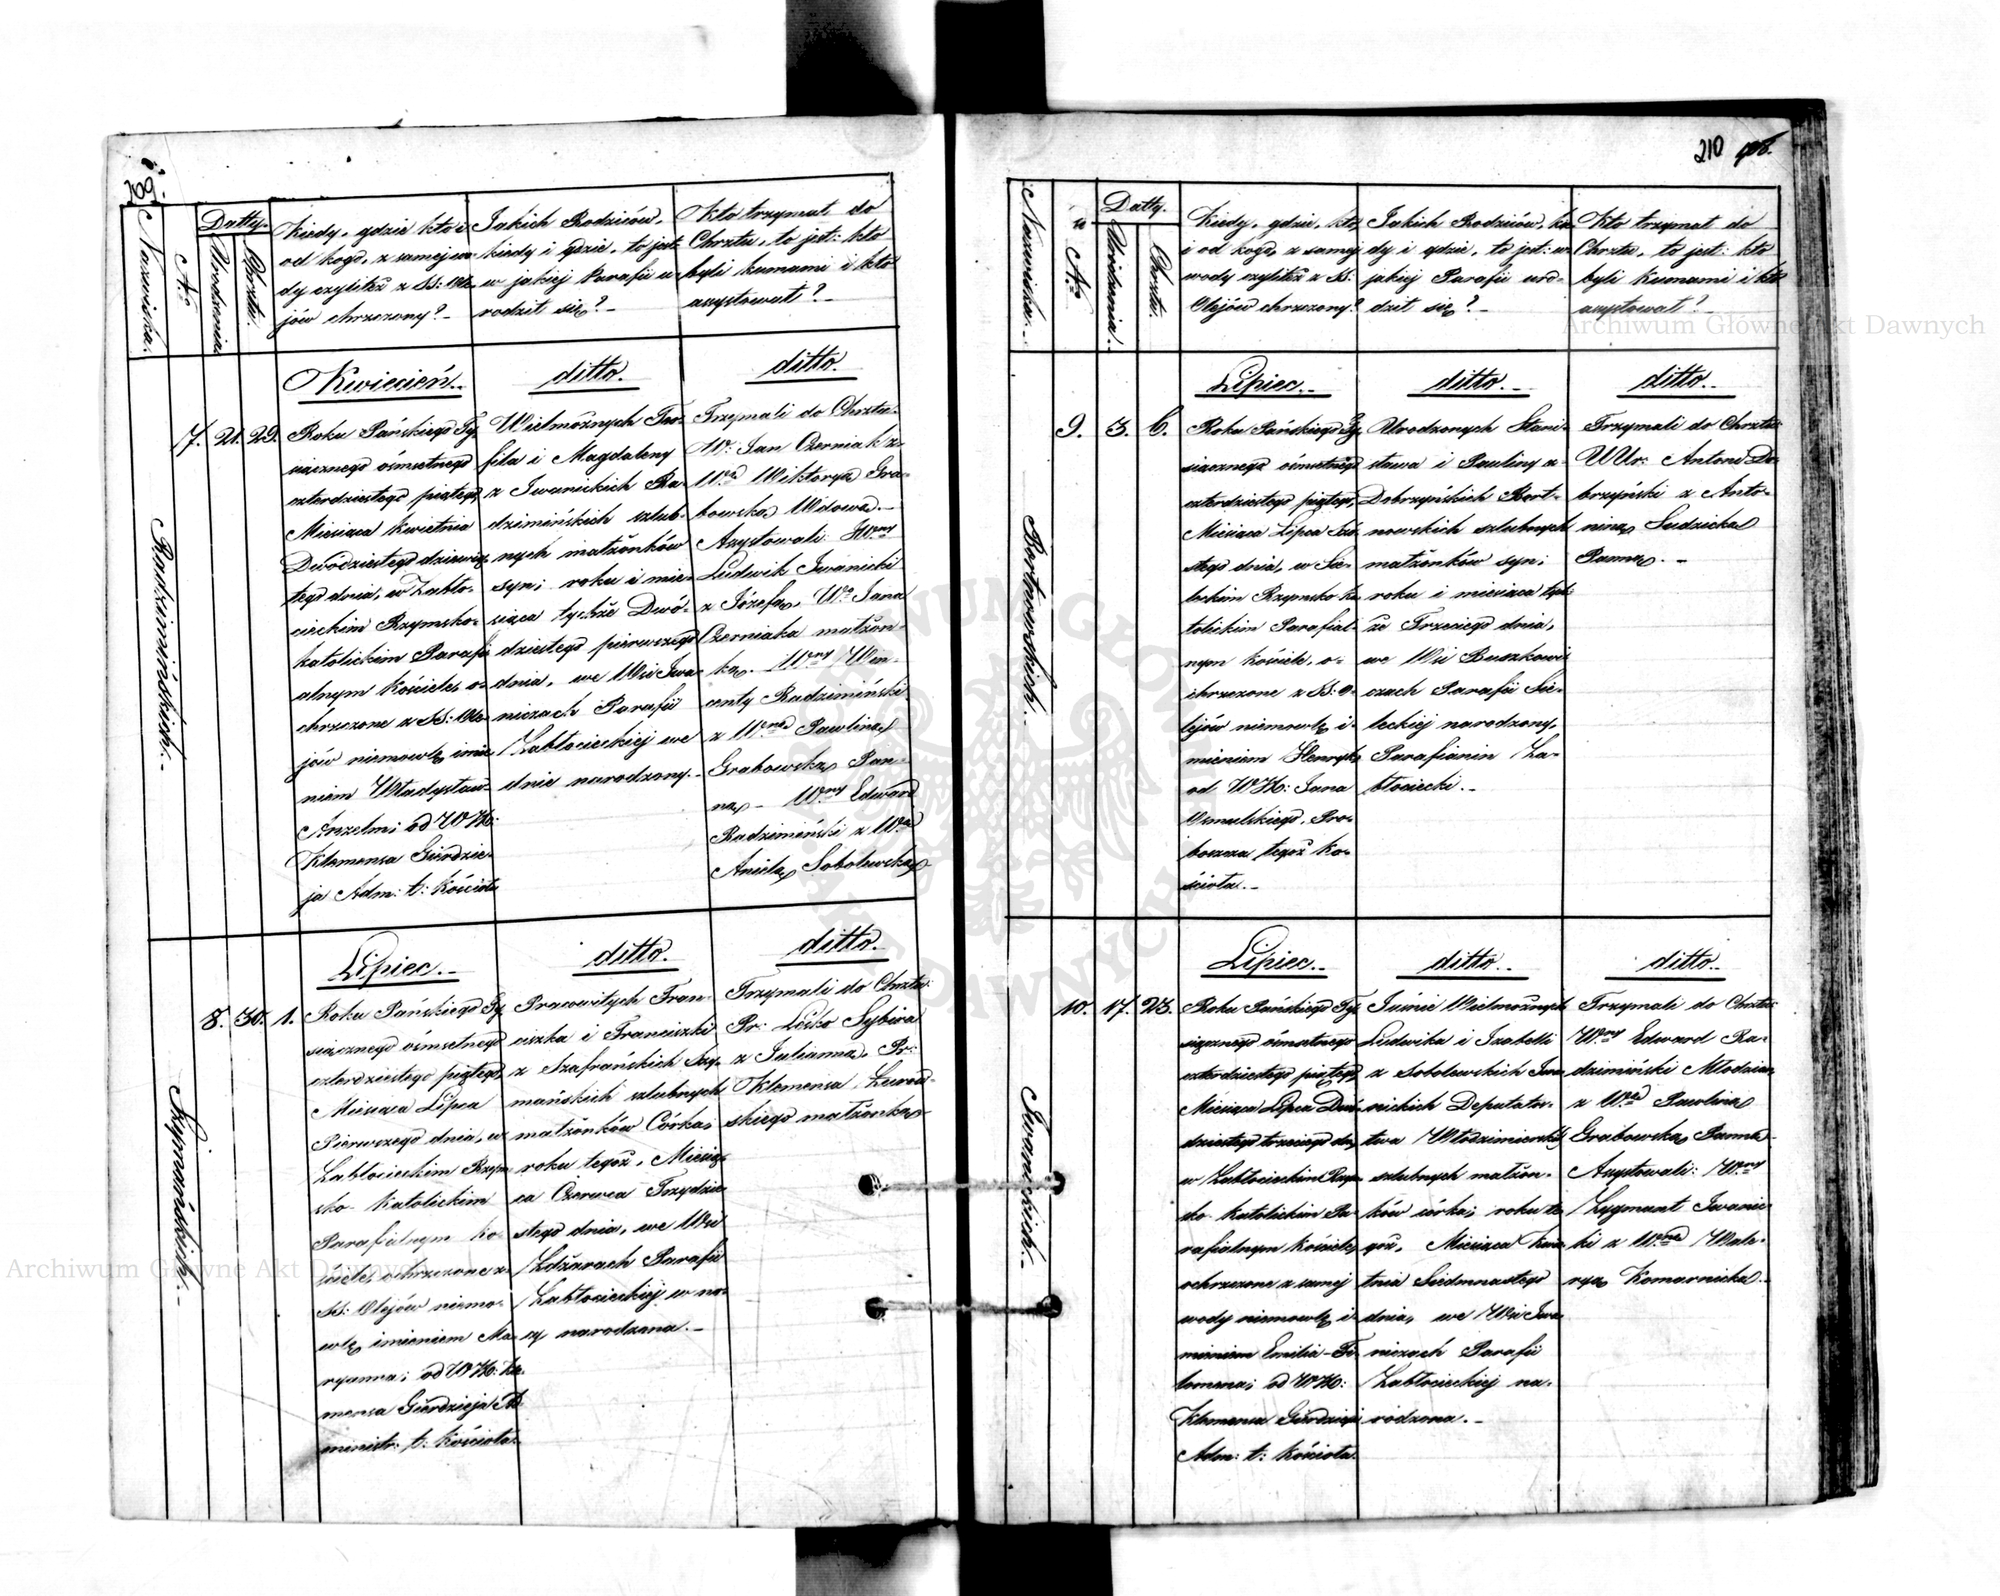 209
Nazwiska.
No
Datty.
Urodzenia
Chrztu.
Kiedy, gdzie kto i
od kogo, z samej wo
dy czyliteż z SS: Ole-
jów chrzczony? -
Jakich Rodziców,
kiedy i gdzie, to jest:
w jakiej Parafii u-
rodził się? -
Kto trzymał do
Chrztu, to jest: kto
byli kumami i kto
assystował? -
Radzimińskich. -
7. 21. 29.
Kwiecień. -
Roku Pańskiego Ty-
siącznego ośmsetnego
czterdziestego piątego,
Miesiąca Kwietnia
Dwódziestego dziewią-
tego dnia, w Zabło-
cieckim Rzymsko-
katolickim Parafi
alnym Kościele, o-
chrzczone z SS: Ole-
jów niemowlę imie
niem Władysław-
Anzelm; od WX:
Klemensa Giurdzie-
ja Adm: t: Kościoła
ditto. -
Wielmożnych Teo-
fila i Magdaleny
z Iwanickich Ra-
dzimińskich szlub-
nych małżonków
syn; roku i mie-
siąca tychże Dwó-
dziestego pierwszego
dnia, we Wsi Iwa-
niczach Parafii
Zabłocieckiej we
dnie narodzony. -
ditto. -
Trzymali do Chrztu:
W: Jan Czerniak z
Wą Wiktoryą Gra-
bowską Wdową. -
Assystowali: JWny
Ludwik Iwanicki
z Józefą, Wo Jana
Czerniaka małżon-
ką. - Wny Win-
centy Radzimiński
z Wną Pauliną
Grabowską Pan-
ną - Wny Edward
Radzimiński z Wną
Anielą Sobolewską
Szymańskich. -
8. 30. 1.
Lipiec. -
Roku Pańskiego Ty-
siącznego ośmsetnego
czterdziestego piątego,
Miesiąca Lipca
Pierwszego dnia, w
Zabłocieckim Rzym
sko- Katolickim
Parafialnym Ko-
ściele, ochrzczone z
SS: Olejów niemo-
wlę imieniem Ma-
ryanna; od WX: Kle-
mensa Giurdzieja Ad
ministr: t: Kościoła.
ditto.
Pracowitych Fran-
ciszka i Franciszki
z Szafrańskich Szy-
mańskich szlubnych
małżonków Córka;
roku tegoż, Miesią-
ca Czerwca Trzydzie-
stego dnia, we Wsi
Zdżarach Parafii
Zabłocieckiej w no-
cy narodzona. -
ditto.
Trzymali do Chrztu:
Pr: Leśko Sybira
z Julianną, Pr:
Klemensa
skiego małżonką
210
Nazwiska. -
No
Datty.
Urodzenia.
Chrztu.
Kiedy, gdzie, kto,
i od kogo, z samej
wody czyliteż z SS:
Olejów chrzczony?
Jakich Rodziców, kie
dy i gdzie, to jest: w
jakiej Parafii uro-
dził się? -
Kto trzymał do
Chrztu, to jest: kto
byli Kumami i kto
assystował? -
Bortnowskich. -
9. 3. 6.
Lipiec. -
Roku Pańskiego Ty-
siącznego ośmsetnego
czterdziestego piątego,
Miesiąca Lipca Szó-
stego dnia, w Sie-
leckim Rzymsko ka-
tolickim Parafial-
nym Kościele, o-
chrzczone z SS: O-
lejów niemowlę i-
mieniem Henryk,
od WX: Jana
Osmulskiego, Pro-
boszcza tegoż Ko-
ścioła. -
ditto. -
Urodzonych Stani-
sława i Pauliny z
Dobrzyńskich Bort-
nowskich szlubnych
małżonków syn;
roku i miesiąca tych
że Trzeciego dnia,
we Wsi Buszkowi
czach Parafii Sie-
leckiej narodzony,
Parafianin Za-
błociecki. -
ditto. -
Trzymali do Chrztu:
WUr: Antoni Do-
brzyński z Anto-
niną Sudzicką
Panną. -
Iwanickich. -
10. 17. 23.
Lipiec. -
Roku Pańskiego Ty-
siącznego ośmsetnego
czterdziestego piątego,
Miesiąca Lipca Dwó-
dziestego trzeciego dnia,
w Zabłocieckim Rzym-
sko katolickim Pa-
rafialnym Kościele,
ochrzczone z samej
wody niemowlę i-
mieniem Emilia-Fi-
lomena; od WX:
Klemensa Giurdzieja
Adm: t: Kościoła.
ditto. -
Jaśnie Wielmożnych
Ludwika i Izabelli
z Sobolewskich Iwa-
nickich Deputator-
stwa Włodzimierskich
szlubnych małżon-
ków córka; roku te-
goż, Miesiąca Kwie
tnia Siedmnastego
dnia, we Wsi Iwa
niczach Parafii
Zabłocieckiej na-
rodzona. -
ditto. -
Trzymali do Chrztu:
Wny Edward Ra-
dzimiński Młodzian
z Wną Pauliną
Grabowską Panną -
Assystowali: Wny
Zygmunt Iwanic-
ki z Wną Wale-
ryą Komarnicką. -
Archiwum Główne Akt Dawnych
Archiwum Główne Akt Dawnych
ARCHIWUM GŁÓWNE AKT DAWNYCH